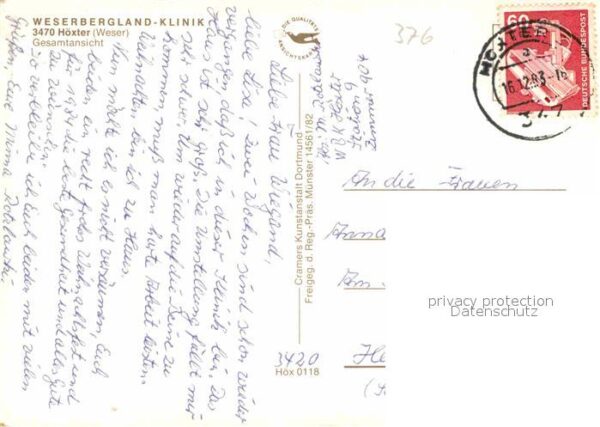 WESERBERGLAND-KLINIK
3470 Höxter (Weser)
Gesamtansicht
DIE QUALITÄTS
ANSICHTSKARTE
376
60
DEUTSCHE BUNDESPOST
HÖXTER
16.12.83-16
Liebe Frau Wiegand,
liebe Lisa! Zwei Wochen sind schon wieder
vergangen, daß ich in dieser Klinik bin. Das
Haus ist sehr groß. Die Umstellung fällt mir
sehr schwer. Um wieder auf die Beine zu
kommen, muß man harte Arbeit leisten.
Weihnachten bin ich zu Haus.
Nun möchte ich es nicht versäumen, Euch
beiden ein recht frohes Weihnachtsfest und
für 84 die beste Gesundheit und alles Gute
zu wünschen.
So verbleibe ich Euch beiden mit vielen
Grüßen, Eure
Cramers Kunstanstalt Dortmund
Freigeg. d. Reg.-Präs. Münster 14561/82
Höxter
Station 9
Zimmer
An die Frauen
Anna
An
privacy protection
Datenschutz
3420
Höx 0118